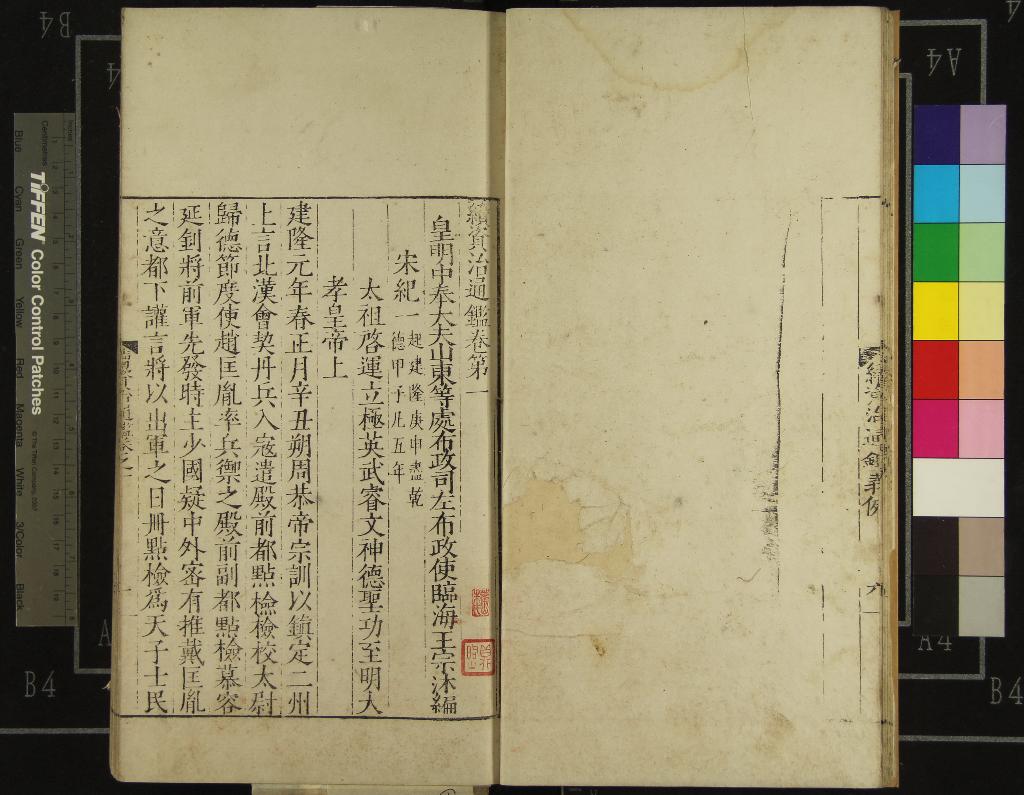 續資治通鑑義例
六
續資治通鑑卷第一
皇明中奉大夫山東等處布政司左布政使臨海王宗沐編
宋紀一
起建隆庚申盡乾
德甲子凡五年
太祖啓運立極英武睿文神德聖功至明大
孝皇帝上
建隆元年春正月辛丑朔周恭帝宗訓以鎮定二州
上言北漢會契丹兵入寇遣殿前都點檢檢校太尉
歸德節度使趙匡胤率兵禦之殿前副都點檢慕容
延釗將前軍先發時主少國疑中外密有推戴匡胤
之意都下讙言將以出軍之日冊點檢爲天子士民
一
TIFFEN Color Control Patches
© The Tiffen Company, 2007
Centimetres
Inches
Blue
Cyan
Green
Yellow
Red
Magenta
White
3/Color
Black
B4
A4
A4
B4
B4